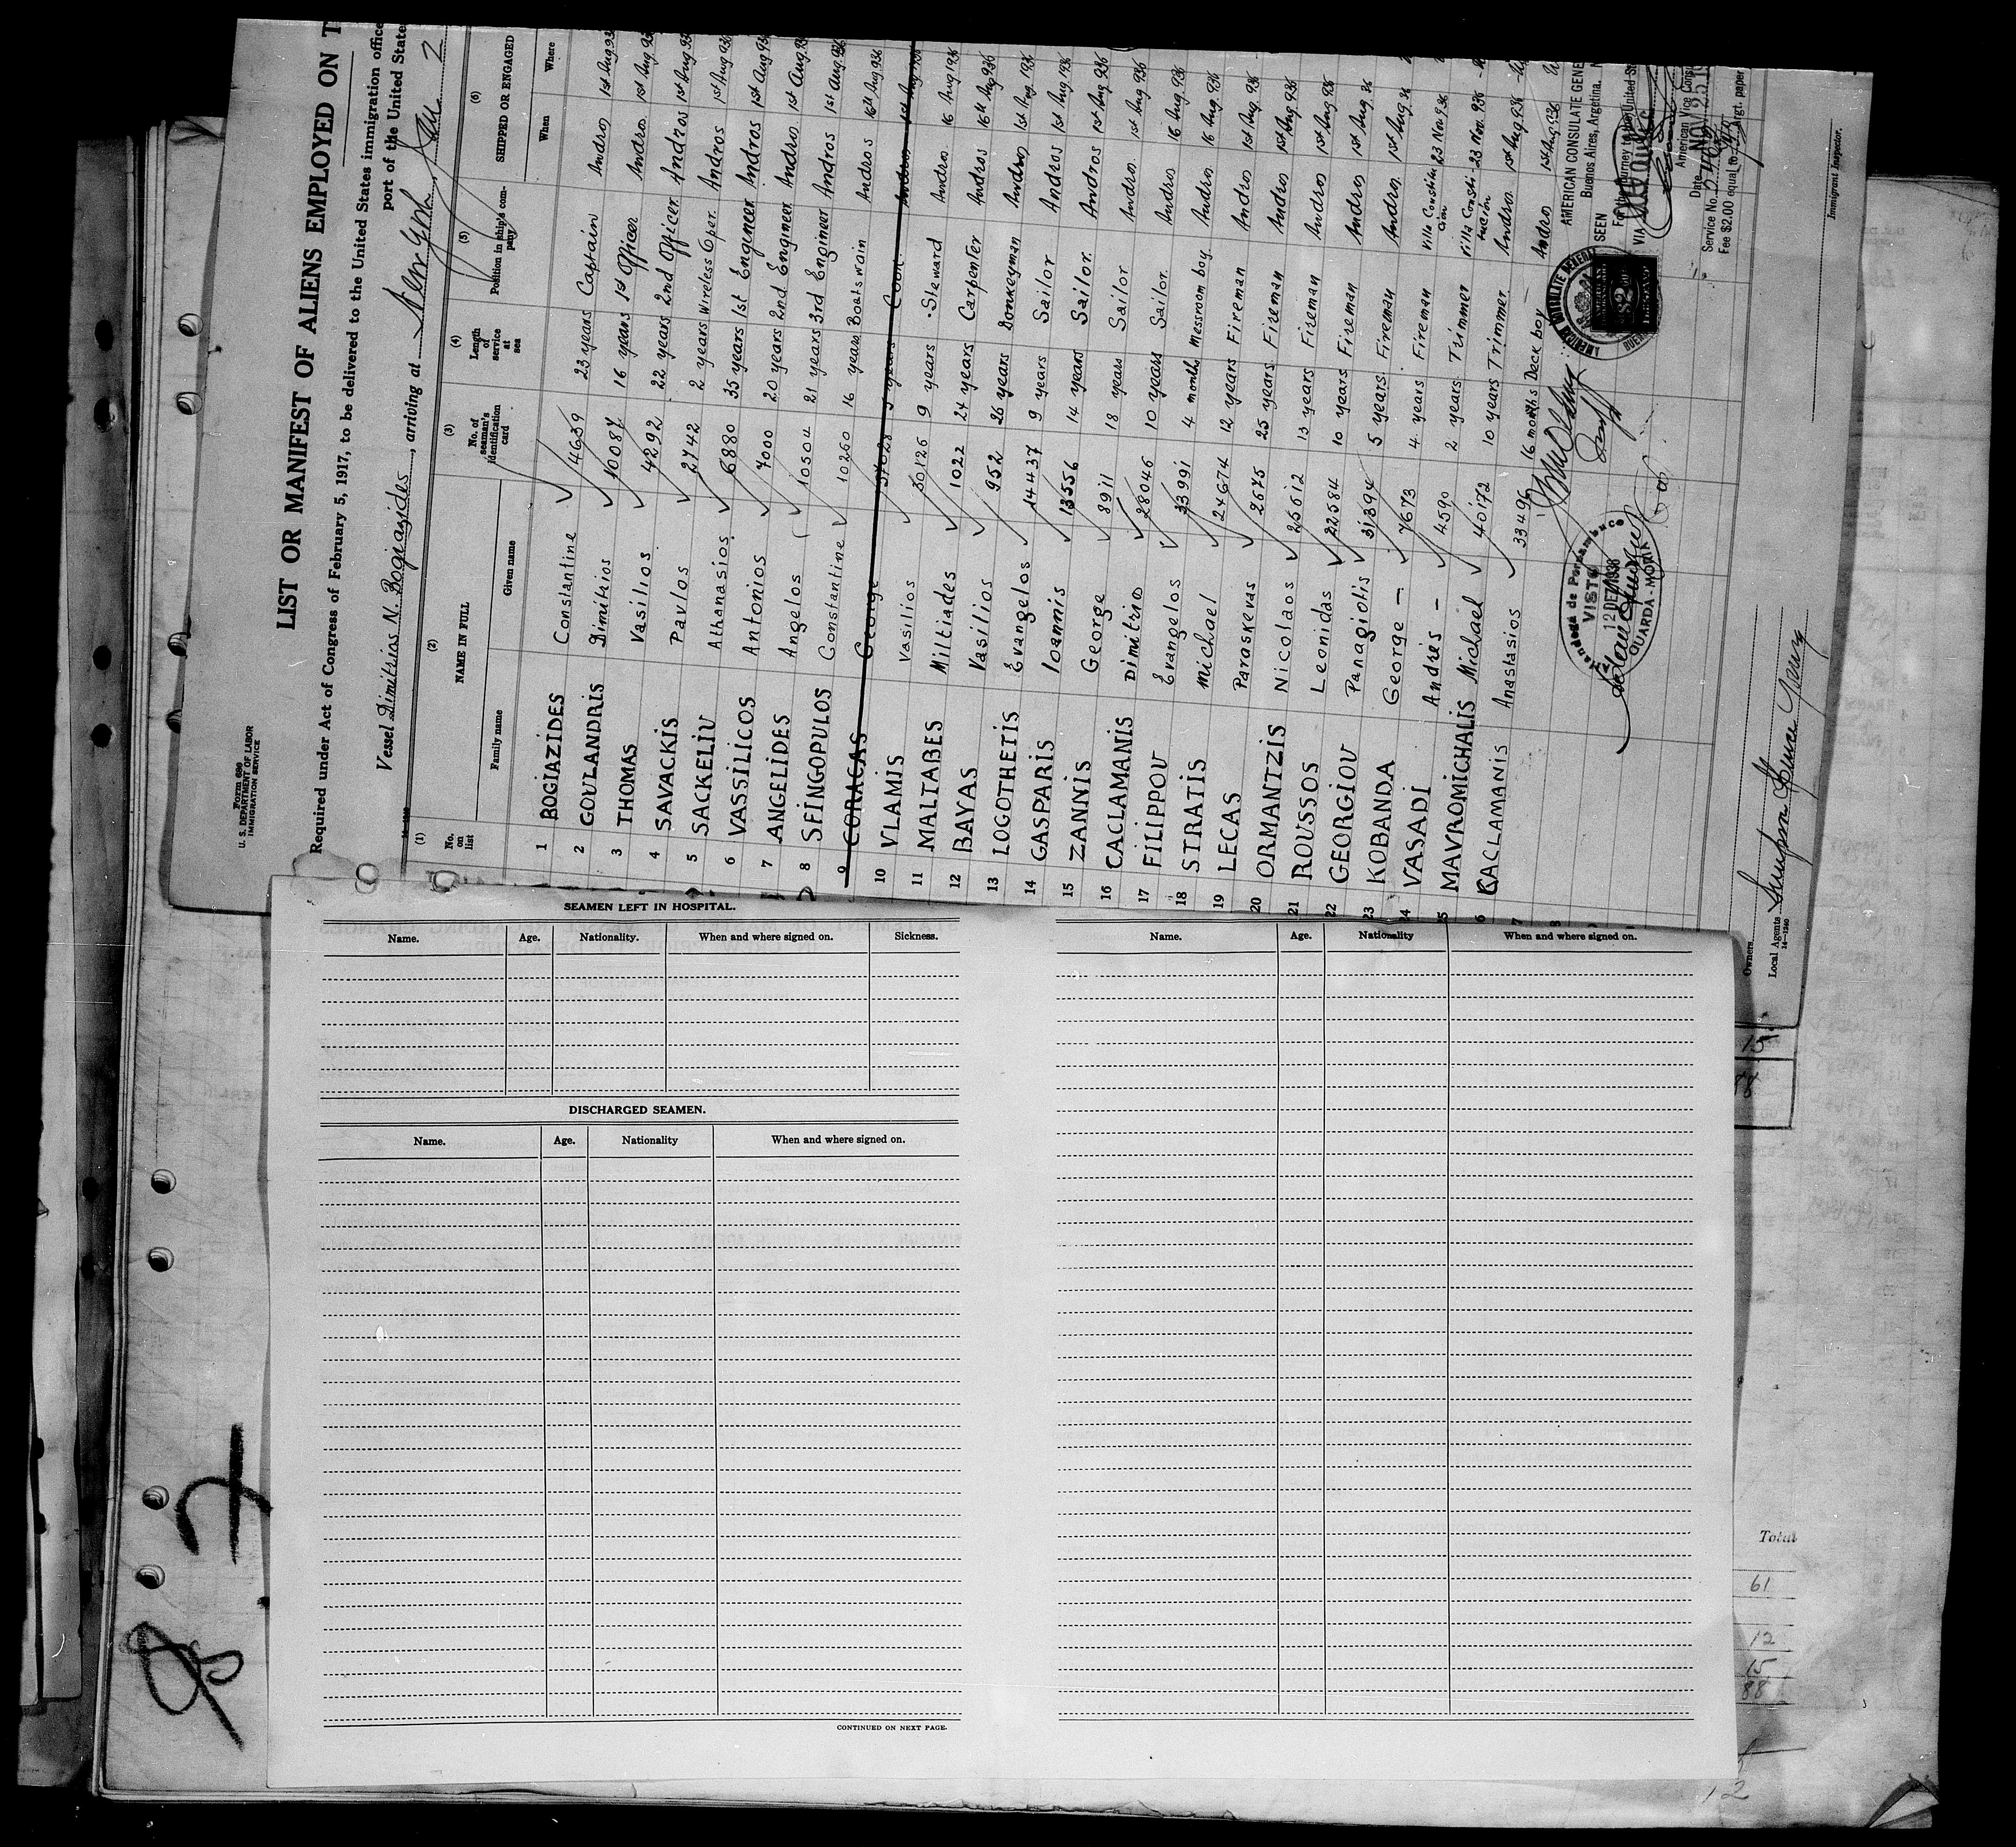 Form 680
U. S. DEPARTMENT OF LABOR
IMMIGRATION SERVICE
LIST OR MANIFEST OF ALIENS EMPLOYED ON T
Required under Act of Congress of February 5, 1917, to be delivered to the United States immigration office
port of the United State
Vessel Dimitrios N. Bogiazides, arriving at
(1) (2) (3) (4) (5) (6)
No. on list NAME IN FULL No. of seaman's identification card Length of service at sea Position in ship's company SHIPPED OR ENGAGED
Family name Given name When Where
1 BOGIAZIDES Constantine 4639 23 years Captain Andros 1st Aug 93
2 GOULANDRIS Dimitrios 10087 16 years 1st Officer Andros 1st Aug 93
3 THOMAS Vasilios 4292 22 years 2nd Officer Andros 1st Aug 93
4 SAVACKIS Pavlos 2742 2 years Wireless Oper. Andros 1st Aug 936
5 SACKELIU Athanasios 6880 35 years 1st Engineer Andros 1st Aug 93
6 VASSILICOS Antonios 7000 20 years 2nd Engineer Andros 1st Aug. 93
7 ANGELIDES Angelos 10504 21 years 3rd Engineer Andros 1st Aug. 936
8 SFINGOPULOS Constantine 10260 16 years Boatswain Andros 16th Aug 936
9 CORACAS George 37028 5 years Cook Andros 1st Aug 1936
10 VLAMIS Vasilios 30126 9 years Steward Andros 16 Aug 1936
11 MALTABES Miltiades 1022 24 years Carpenter Andros 16th Aug 936
12 BAYAS Vasilios 952 26 years Donkeyman Andros 1st Aug 1936
13 LOGOTHETIS Evangelos 14437 9 years Sailor Andros 1st Aug 1936
14 GASPARIS Ioannis 13556 14 years Sailor. Andros 1st Aug 936
15 ZANNIS George 8911 18 years Sailor Andros. 1st Aug 936
16 CACLAMANIS Dimitrios 28046 10 years Sailor. Andros 16 Aug 936
17 FILIPPOU Evangelos 33991 4 months Messroom boy. Andros. 16 Aug. 936
18 STRATIS Michael 24674 12 years Fireman Andros 1st Aug. 936
19 LECAS Paraskevas 2675 25 years Fireman Andros 1st Aug. 936
20 ORMANTZIS Nicolaos 25612 13 years Fireman Andros 1st Aug 936
21 ROUSSOS Leonidas 22584 10 years Fireman Andros 1st Aug 36
22 GEORGIOU Panagiotis 31394 5 years. Fireman Andros. 1st Aug 36
23 KOBANDA George - 7673 4 years Fireman Villa Constitución 23 Nov 936
24 VASADI Andres - 4590 2 years. Trimmer Villa Constitución 23 Nov. 936
25 MAVROMICHALIS Michael 40172 10 years Trimmer. Andros 1st Aug 936
6 CACLAMANIS Anastasios 33496 16 months Deck boy Andros 1st Aug 936
7
8
AMERICAN CONSULATE GENE
Buenos Aires, Argetina.
SEEN
For the journey to the United St
VIA
American Vice Cons
Date NOV 25 19
Service No.
Fee $2.00 equal to Argt. paper
Alfandega de Pernambuco
VISTO
12 DEZ 1936
GUARDA - MORIA
Immigrant Inspector.
Owners
Local Agents
14-1240
SEAMEN LEFT IN HOSPITAL.
Name. Age. Nationality. When and where signed on. Sickness.
DISCHARGED SEAMEN.
Name. Age. Nationality When and where signed on.
CONTINUED ON NEXT PAGE.
Name. Age. Nationality When and where signed on.
15
88
Total
61
12
15
88
12